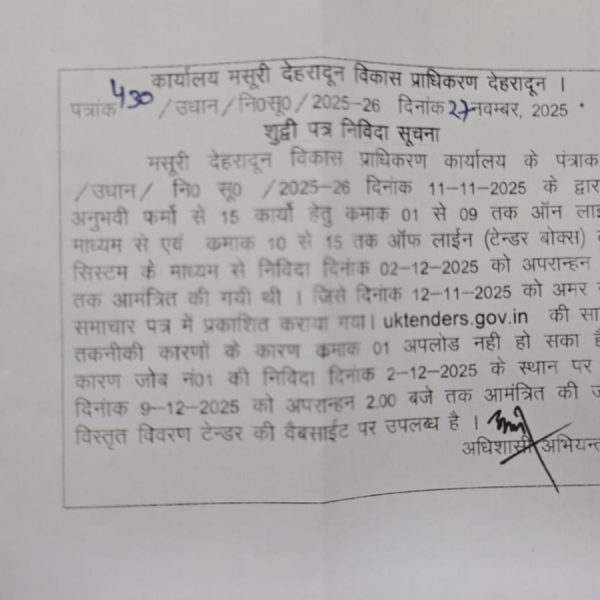 कार्यालय मसूरी देहरादून विकास प्राधिकरण देहरादून ।
पत्रांक 430 /उधान/नि0सू0/2025-26 दिनांक 27 नवम्बर, 2025
शुद्वी पत्र निविदा सूचना
मसूरी देहरादून विकास प्राधिकरण कार्यालय के पंत्राक
/उधान/ नि0 सू0 /2025-26 दिनांक 11-11-2025 के द्वार
अनुभवी फर्मो से 15 कार्यो हेतु कमाक 01 से 09 तक ऑन लाई
माध्यम से एवं कमाक 10 से 15 तक ऑफ लाईन (टेन्डर बोक्स)
सिस्टम के माध्यम से निविदा दिनांक 02-12-2025 को अपरान्हन
तक आमंत्रित की गयी थी । जिसे दिनांक 12-11-2025 को अमर
समाचार पत्र में प्रकाशित कराया गया। uktenders.gov.in की सा
तकनीकी कारणों के कारण कमाक 01 अपलोड नही हो सका है
कारण जोब नं01 की निविदा दिनांक 2-12-2025 के स्थान पर
दिनांक 9-12-2025 को अपरान्हन 2.00 बजे तक आमंत्रित की ज
विस्तृत विवरण टेन्डर की वैबसाईट पर उपलब्ध है ।
अधिशासी अभियन्त